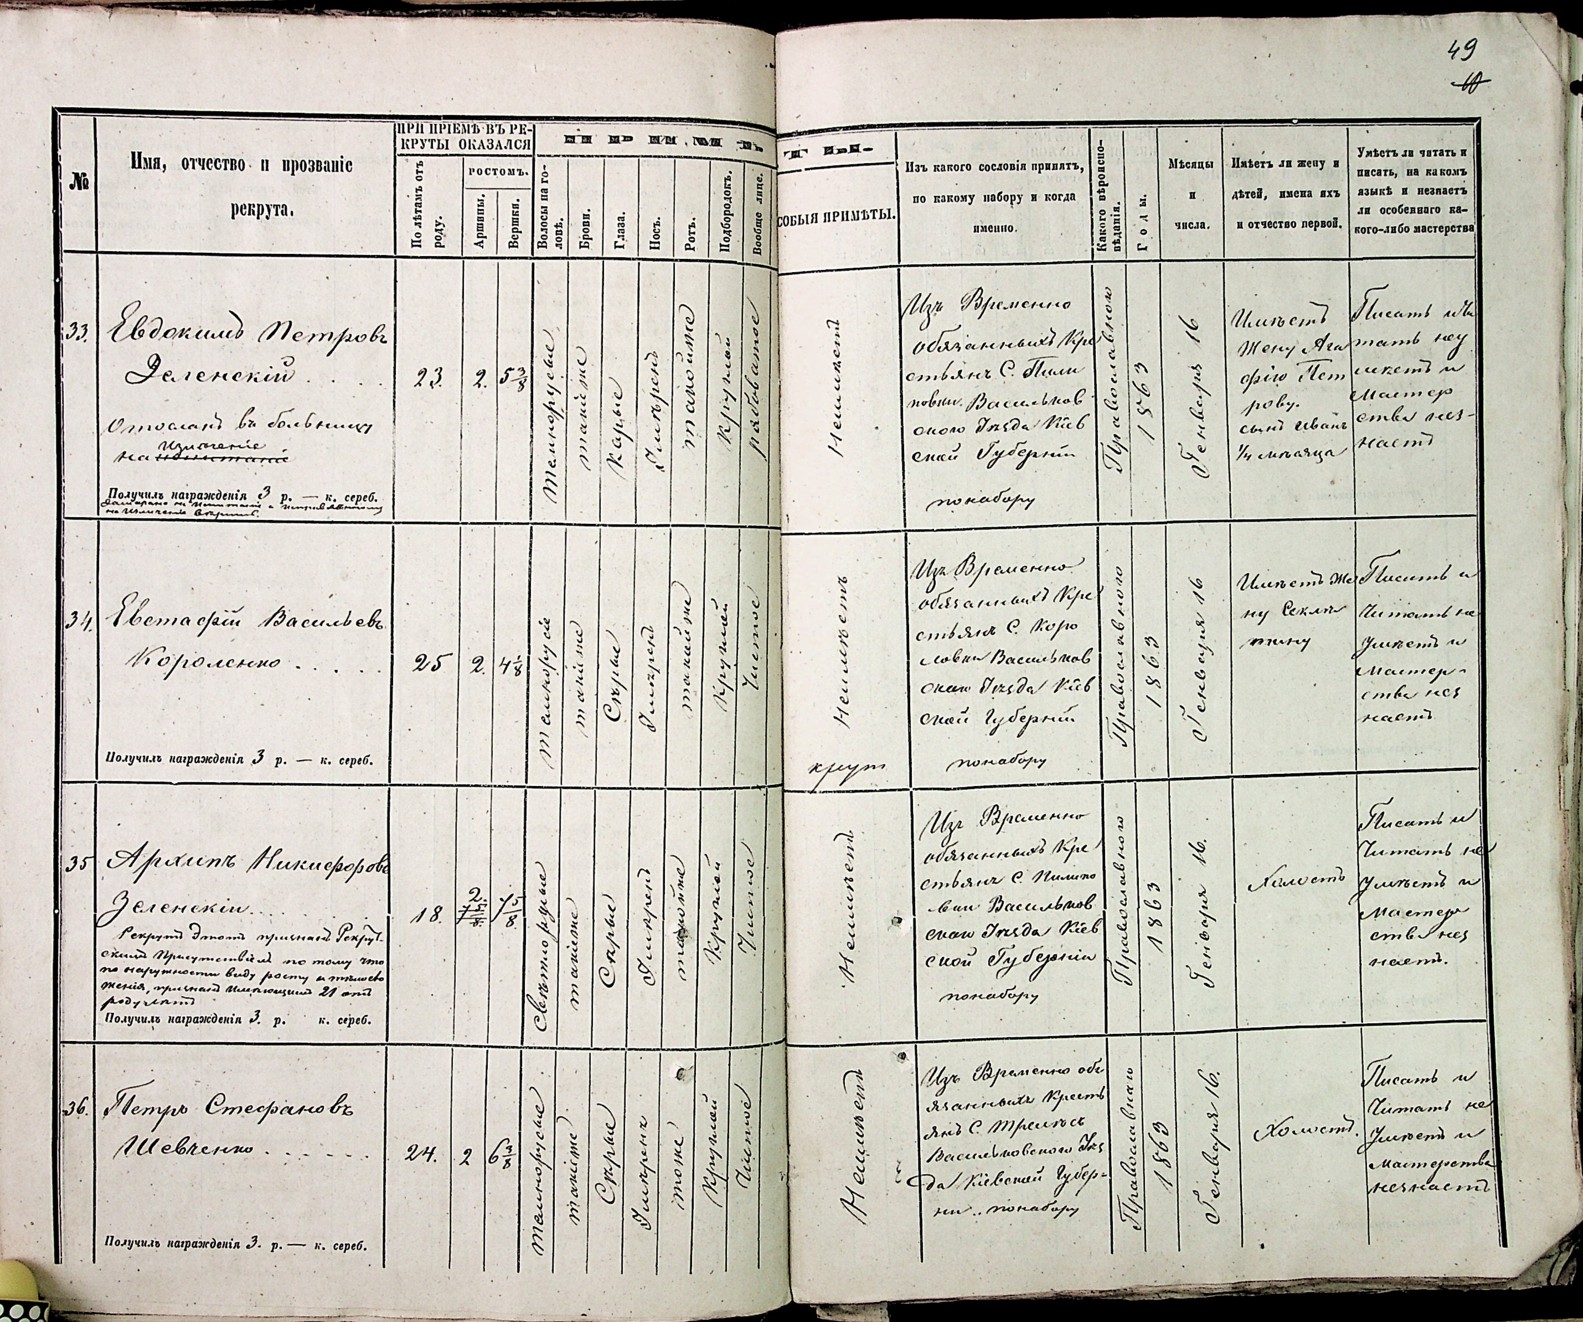 49
№
Имя, отчество и прозваніе
рекрута.
ПРИ ПРІЕМѢ ВЪ РЕ-
КРУТЫ ОКАЗАЛСЯ
По лѣтамъ отъ
роду.
РОСТОМЪ.
Аршины.
Вершки.
Волосы на го-
ловѣ.
Брови.
Глаза.
Носъ.
Ротъ.
Подбородокъ.
Вообще лице.
СОБЫЯ ПРИМѢТЫ.
Изъ какого сословія принятъ,
по какому набору и когда
именно.
Какого вѣроиспо-
вѣданія.
Годы.
Мѣсяцы
и
числа.
Имѣетъ ли жену и
дѣтей, имена ихъ
и отчество первой.
Умѣетъ ли читать и
писать, на какомъ
языкѣ и незнаетъ
ли особеннаго ка-
кого-либо мастерства
33.
Евдокимъ Петровъ
Зеленскій
Отосланъ въ больницу
на излеченіе
Получилъ награжденія 3 р. — к. сереб.
23.
2.
5 3/8
темнорусые
такіеже
Карые
Умѣренъ
такойже
круглый
рябоватое
Неимѣетъ
Изъ Временно
обязанныхъ Кре
стьянъ С. Пили
повки Васильков
скаго Уѣзда Кіев
ской Губерніи
понабору
Православнаго
1863
Генваря 16
Имѣетъ
Жену Ага
фію Пет
рову.
сынъ Иванъ
1/4 мѣсяца
Писать и Чи
тать неу
мѣетъ и
Мастер
ства нез-
наетъ
34.
Евстафій Васильевъ
Короленко
Получилъ награжденія 3 р. — к. сереб.
25
2.
4 1/8
темнорусіе
такіеже
Сѣрые
Умѣренъ
такойже
Круглый
Чистое
Неимѣетъ
крут
Изъ Временно
обязанныхъ Кре
стьянъ С. Коро
ловки Васильков
скаго Уѣзда Кіев
ской Губерніи
понабору
Православнаго
1863
Генваря 16
Имѣетъ Же
ну Секлѣ
тину
Писать и
Читать не
Умѣетъ и
Мастер-
ства нез
наетъ
35
Архипъ Никифоровъ
Зеленскій
Рекрутъ этотъ принятъ Рекрут-
скимъ Присутствіемъ по тому что
по наружности виду росту и тѣлосло
женія, признанъ имѣющимъ 21 отъ
роду лѣтъ
Получилъ награжденія 3. р. к. сереб.
18.
2.
7 5/8
Свѣтлорусые
такіеже
Сѣрые
Умѣренъ
такойже
Круглый
Чистое
Неимѣетъ
Изъ Временно
обязанныхъ Кре
стьянъ С. Пилипо
вки Васильков
скаго Уѣзда Кіев
ской Губерніи
понабору
Православнаго
1863
Генваря 16.
Холостъ
Писать и
Читать не
Умѣетъ и
Мастер
ства нез
наетъ.
36.
Петръ Стефановъ
Шевченко
Получилъ награжденія 3. р. — к. сереб.
24.
2
6 3/8
темнорусые
такіеже
Сѣрые
Умѣренъ
тоже
Круглый
Чистое
Неимѣетъ
Изъ Временно об
язанныхъ Кресть
янъ С. Трелѣсъ
Васильковского Уѣз
да Кіевской Губер-
ни. понабору
Православнаго
1863
Генваря 16.
Холостъ.
Писать и
Читать не
Умѣетъ и
Мастерства
незнаетъ